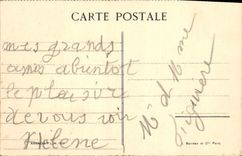 CARTE POSTALE
mes grands
amis a bientot
le plaisir
de vous voir
Hélène
Mr et Mme